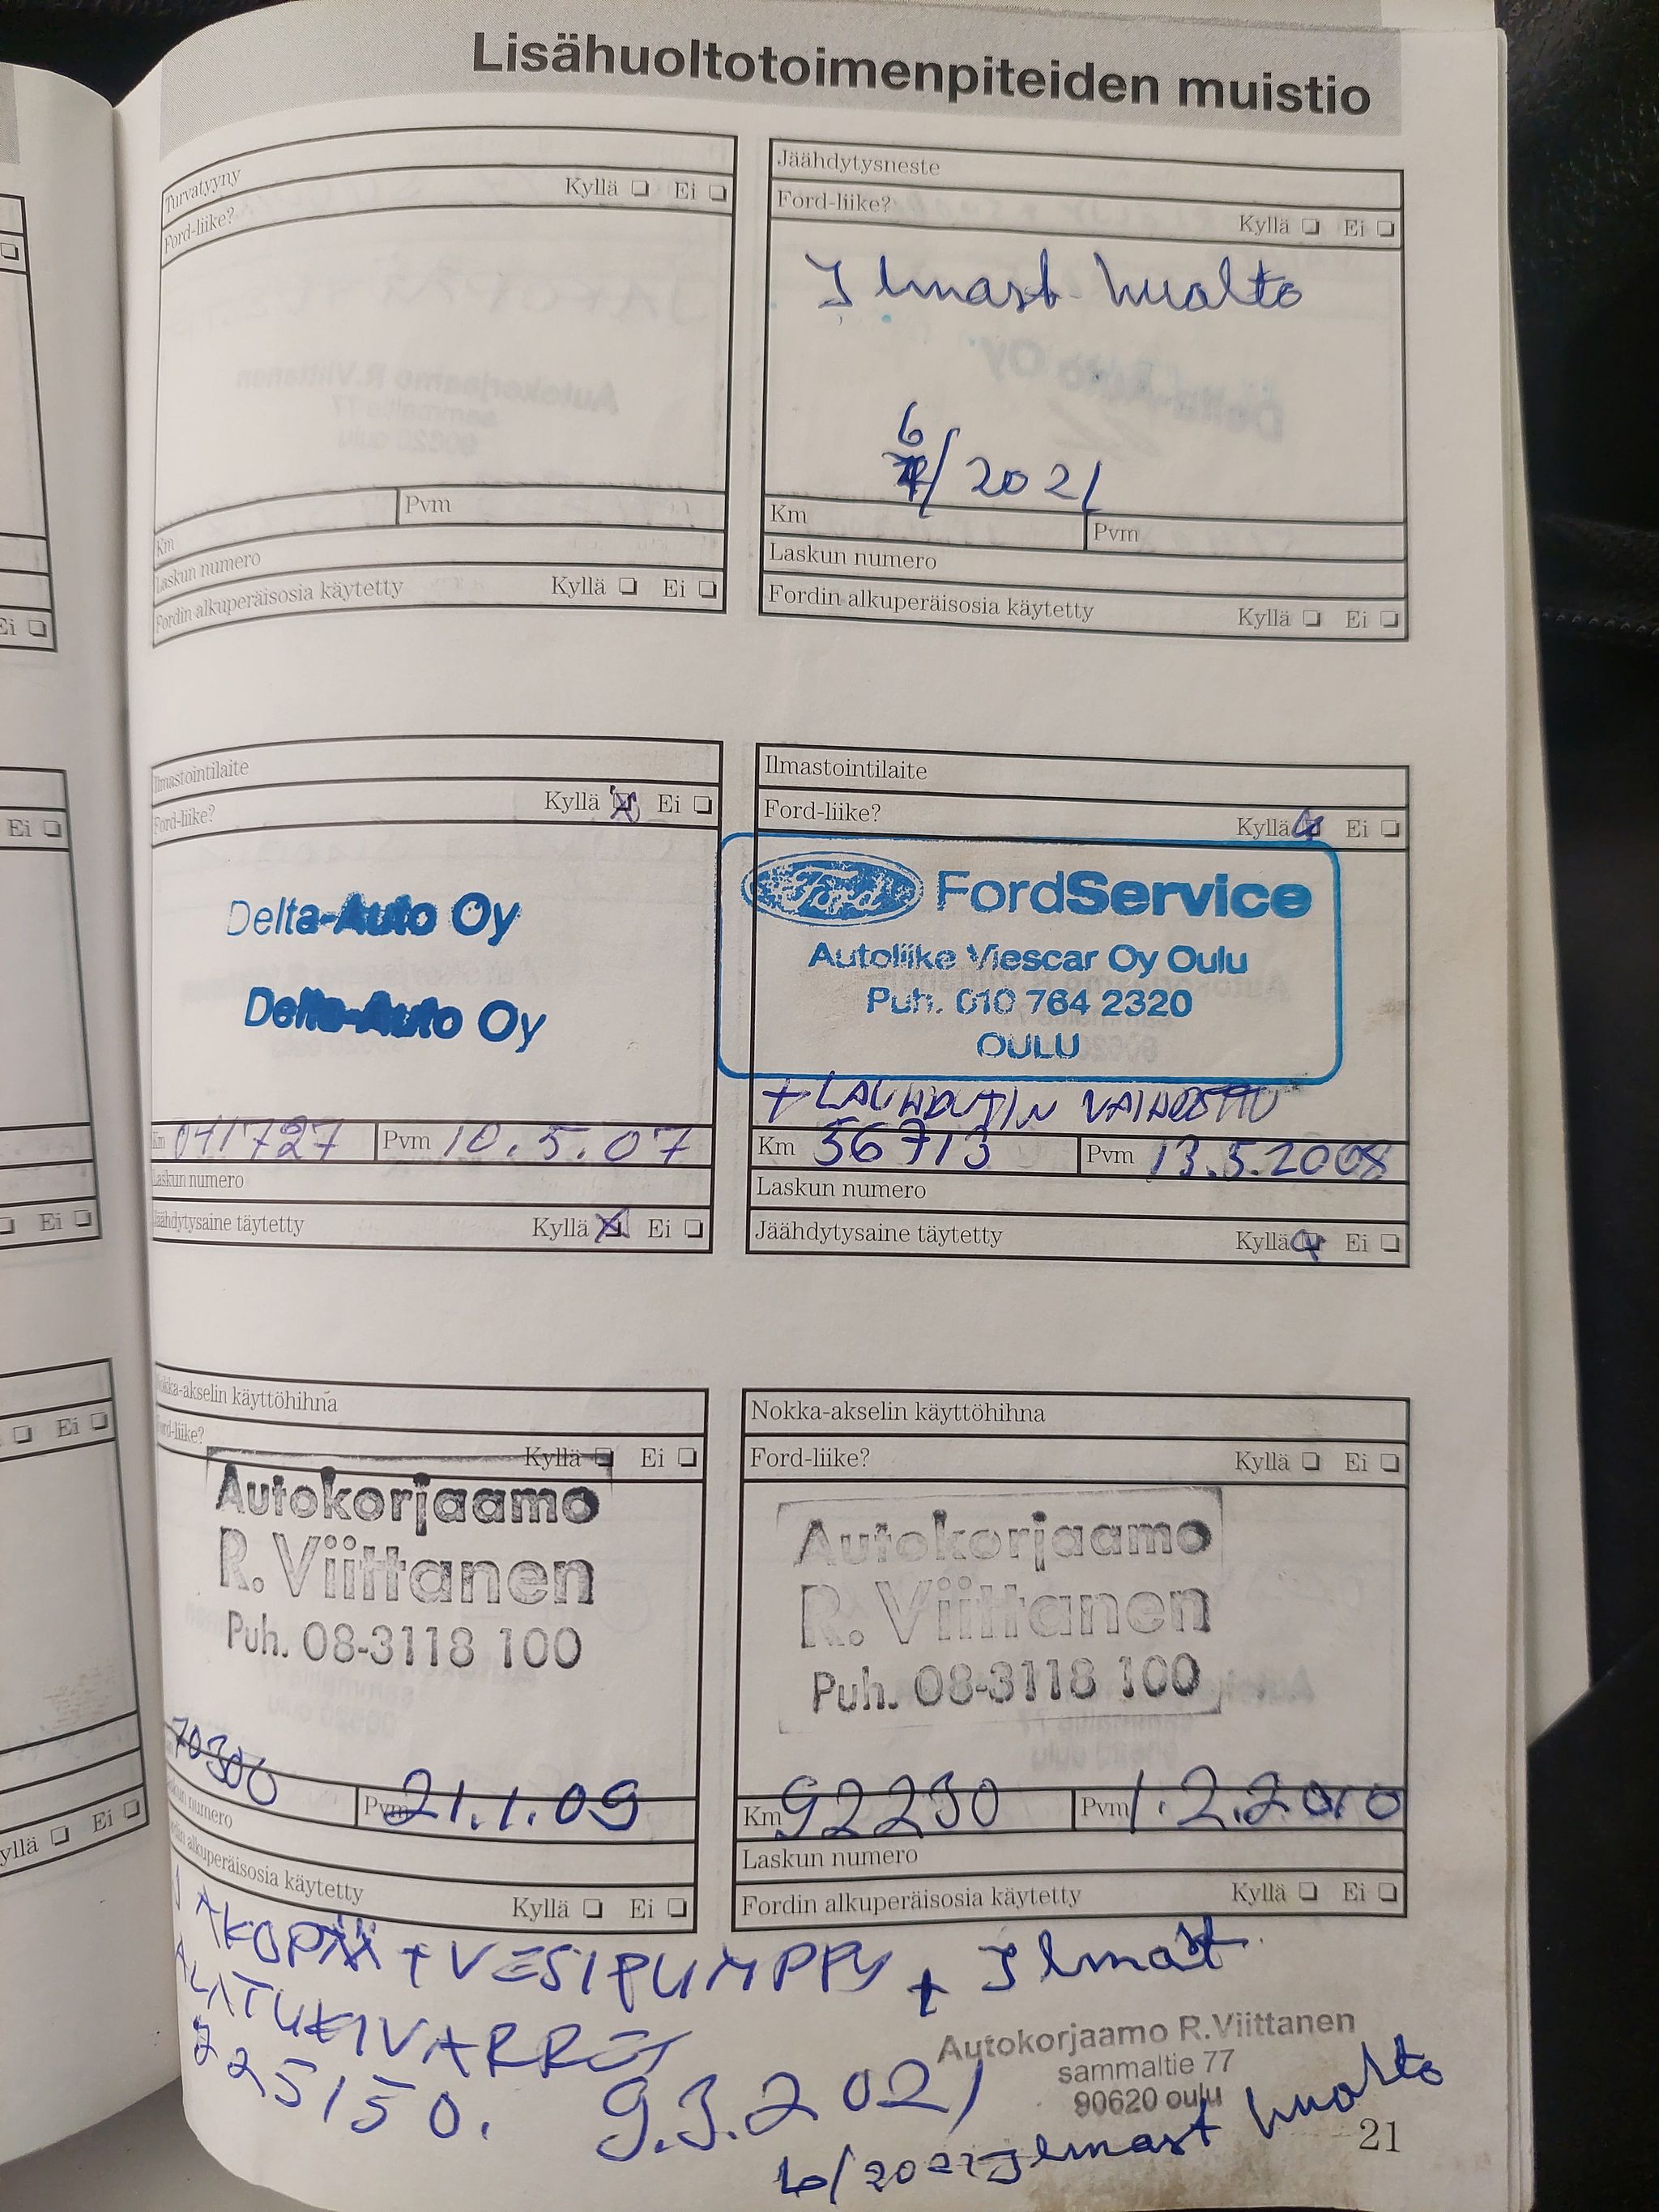 Lisähuoltotoimenpiteiden muistio
Turvatyyny
Ford-liike?
Kyllä ❏ Ei ❏
Km
Pvm
Laskun numero
Fordin alkuperäisosia käytetty Kyllä ❏ Ei ❏
Jäähdytysneste
Ford-liike?
Kyllä ❏ Ei ❏
Ilmast huolto
6/2021
Km
Pvm
Laskun numero
Fordin alkuperäisosia käytetty Kyllä ❏ Ei ❏
Ilmastointilaite
Ford-liike?
Kyllä ☒ Ei ❏
Delta-Auto Oy
Delta-Auto Oy
Km 041727 Pvm 10.5.07
Laskun numero
Jäähdytysaine täytetty Kyllä ☒ Ei ❏
Ilmastointilaite
Ford-liike?
Kyllä ☒ Ei ❏
Ford FordService
Autoliike Viescar Oy Oulu
Puh. 010 764 2320
OULU
+ LAUHDUTIN VAIHDETTU
Km 56713 Pvm 13.5.2008
Laskun numero
Jäähdytysaine täytetty Kyllä ☒ Ei ❏
Nokka-akselin käyttöhihna
Ford-liike?
Kyllä ❏ Ei ❏
Autokorjaamo
R.Viittanen
Puh. 08-3118 100
70300 Pvm 21.1.09
Laskun numero
Fordin alkuperäisosia käytetty
Kyllä ❏ Ei ❏
Nokka-akselin käyttöhihna
Ford-liike?
Kyllä ❏ Ei ❏
Autokorjaamo
R.Viittanen
Puh. 08-3118 100
Km 92230 Pvm 1.2.2010
Laskun numero
Fordin alkuperäisosia käytetty Kyllä ❏ Ei ❏
JAKOPÄÄ + VESIPUMPPU + Ilmast
ALATUKIVARRET
225150. 9.3.2021
Autokorjaamo R.Viittanen
sammaltie 77
90620 oulu
Ilmast huolto
21